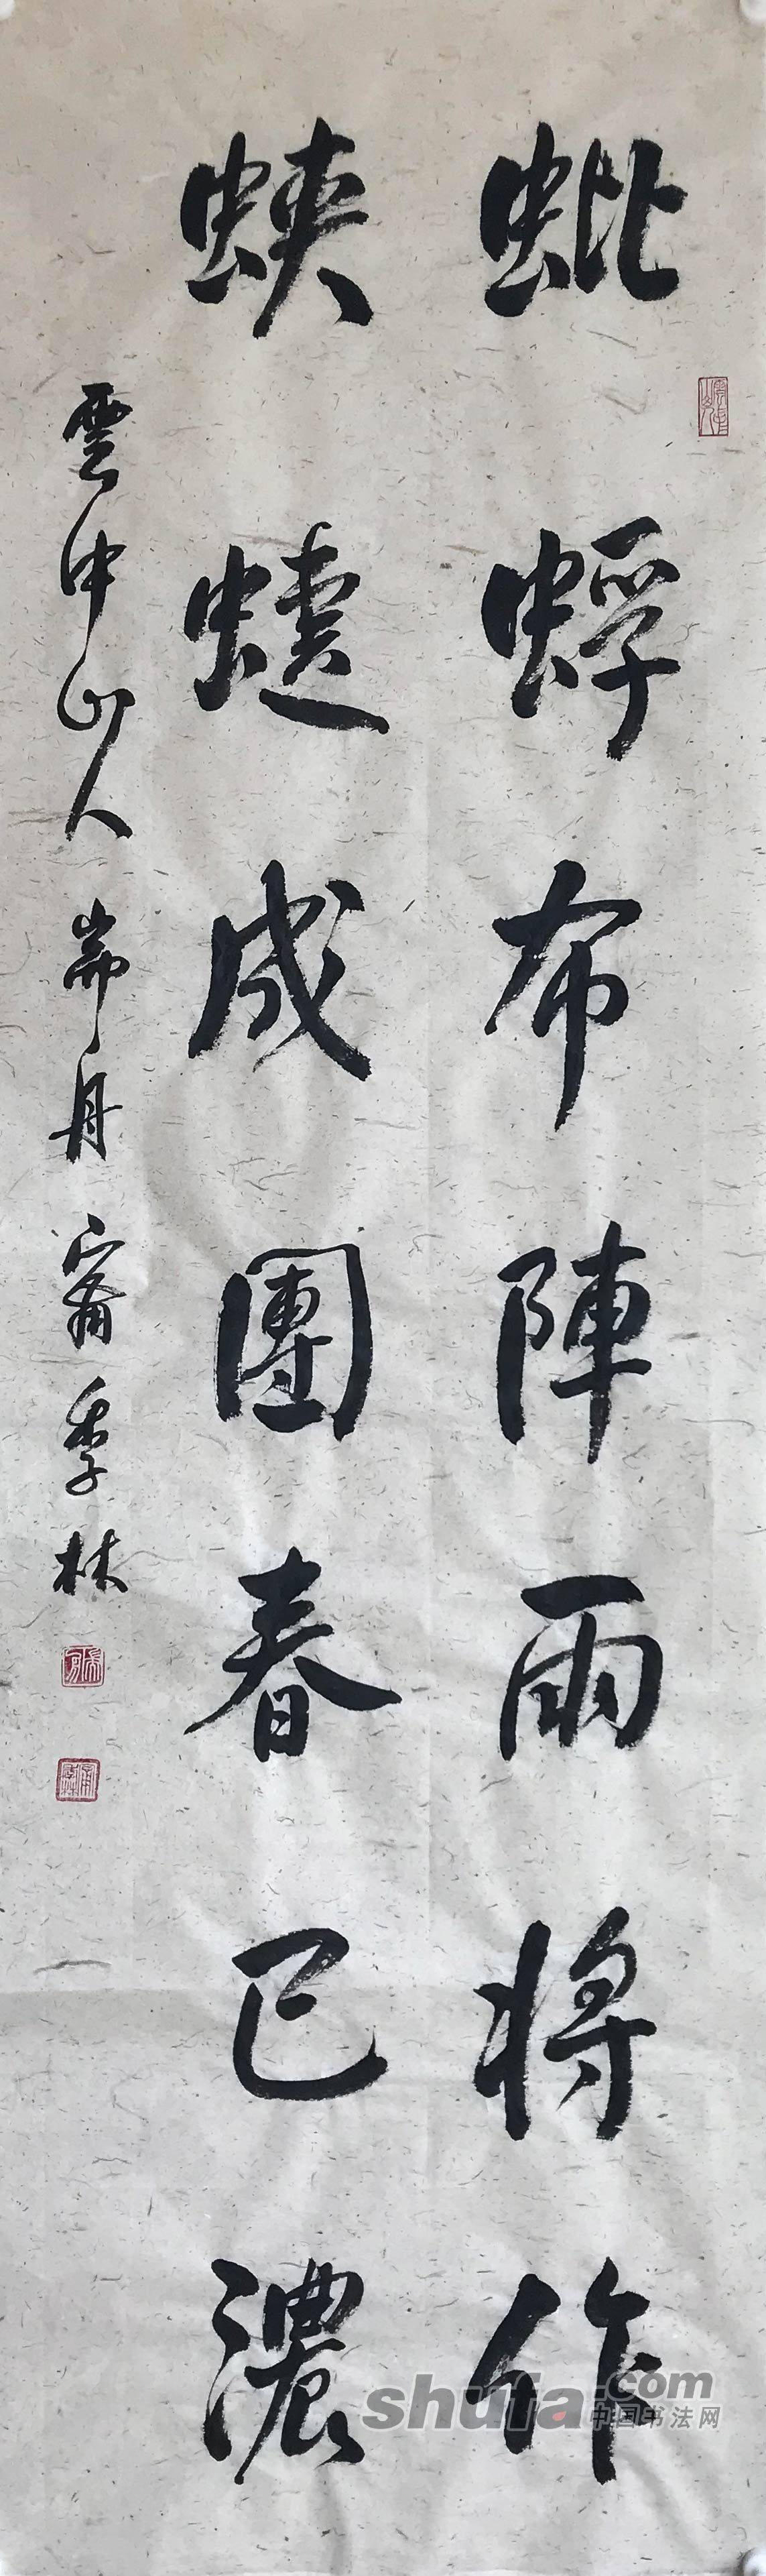 蚍蜉布陣雨將作
蛺蜨成團春已濃
雲中山人
季林
shufa.com
中国书法网